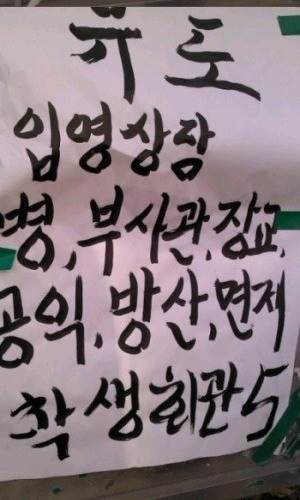 입영상담
병,부사관,장교,
공익,방산,면제
학생회관 5